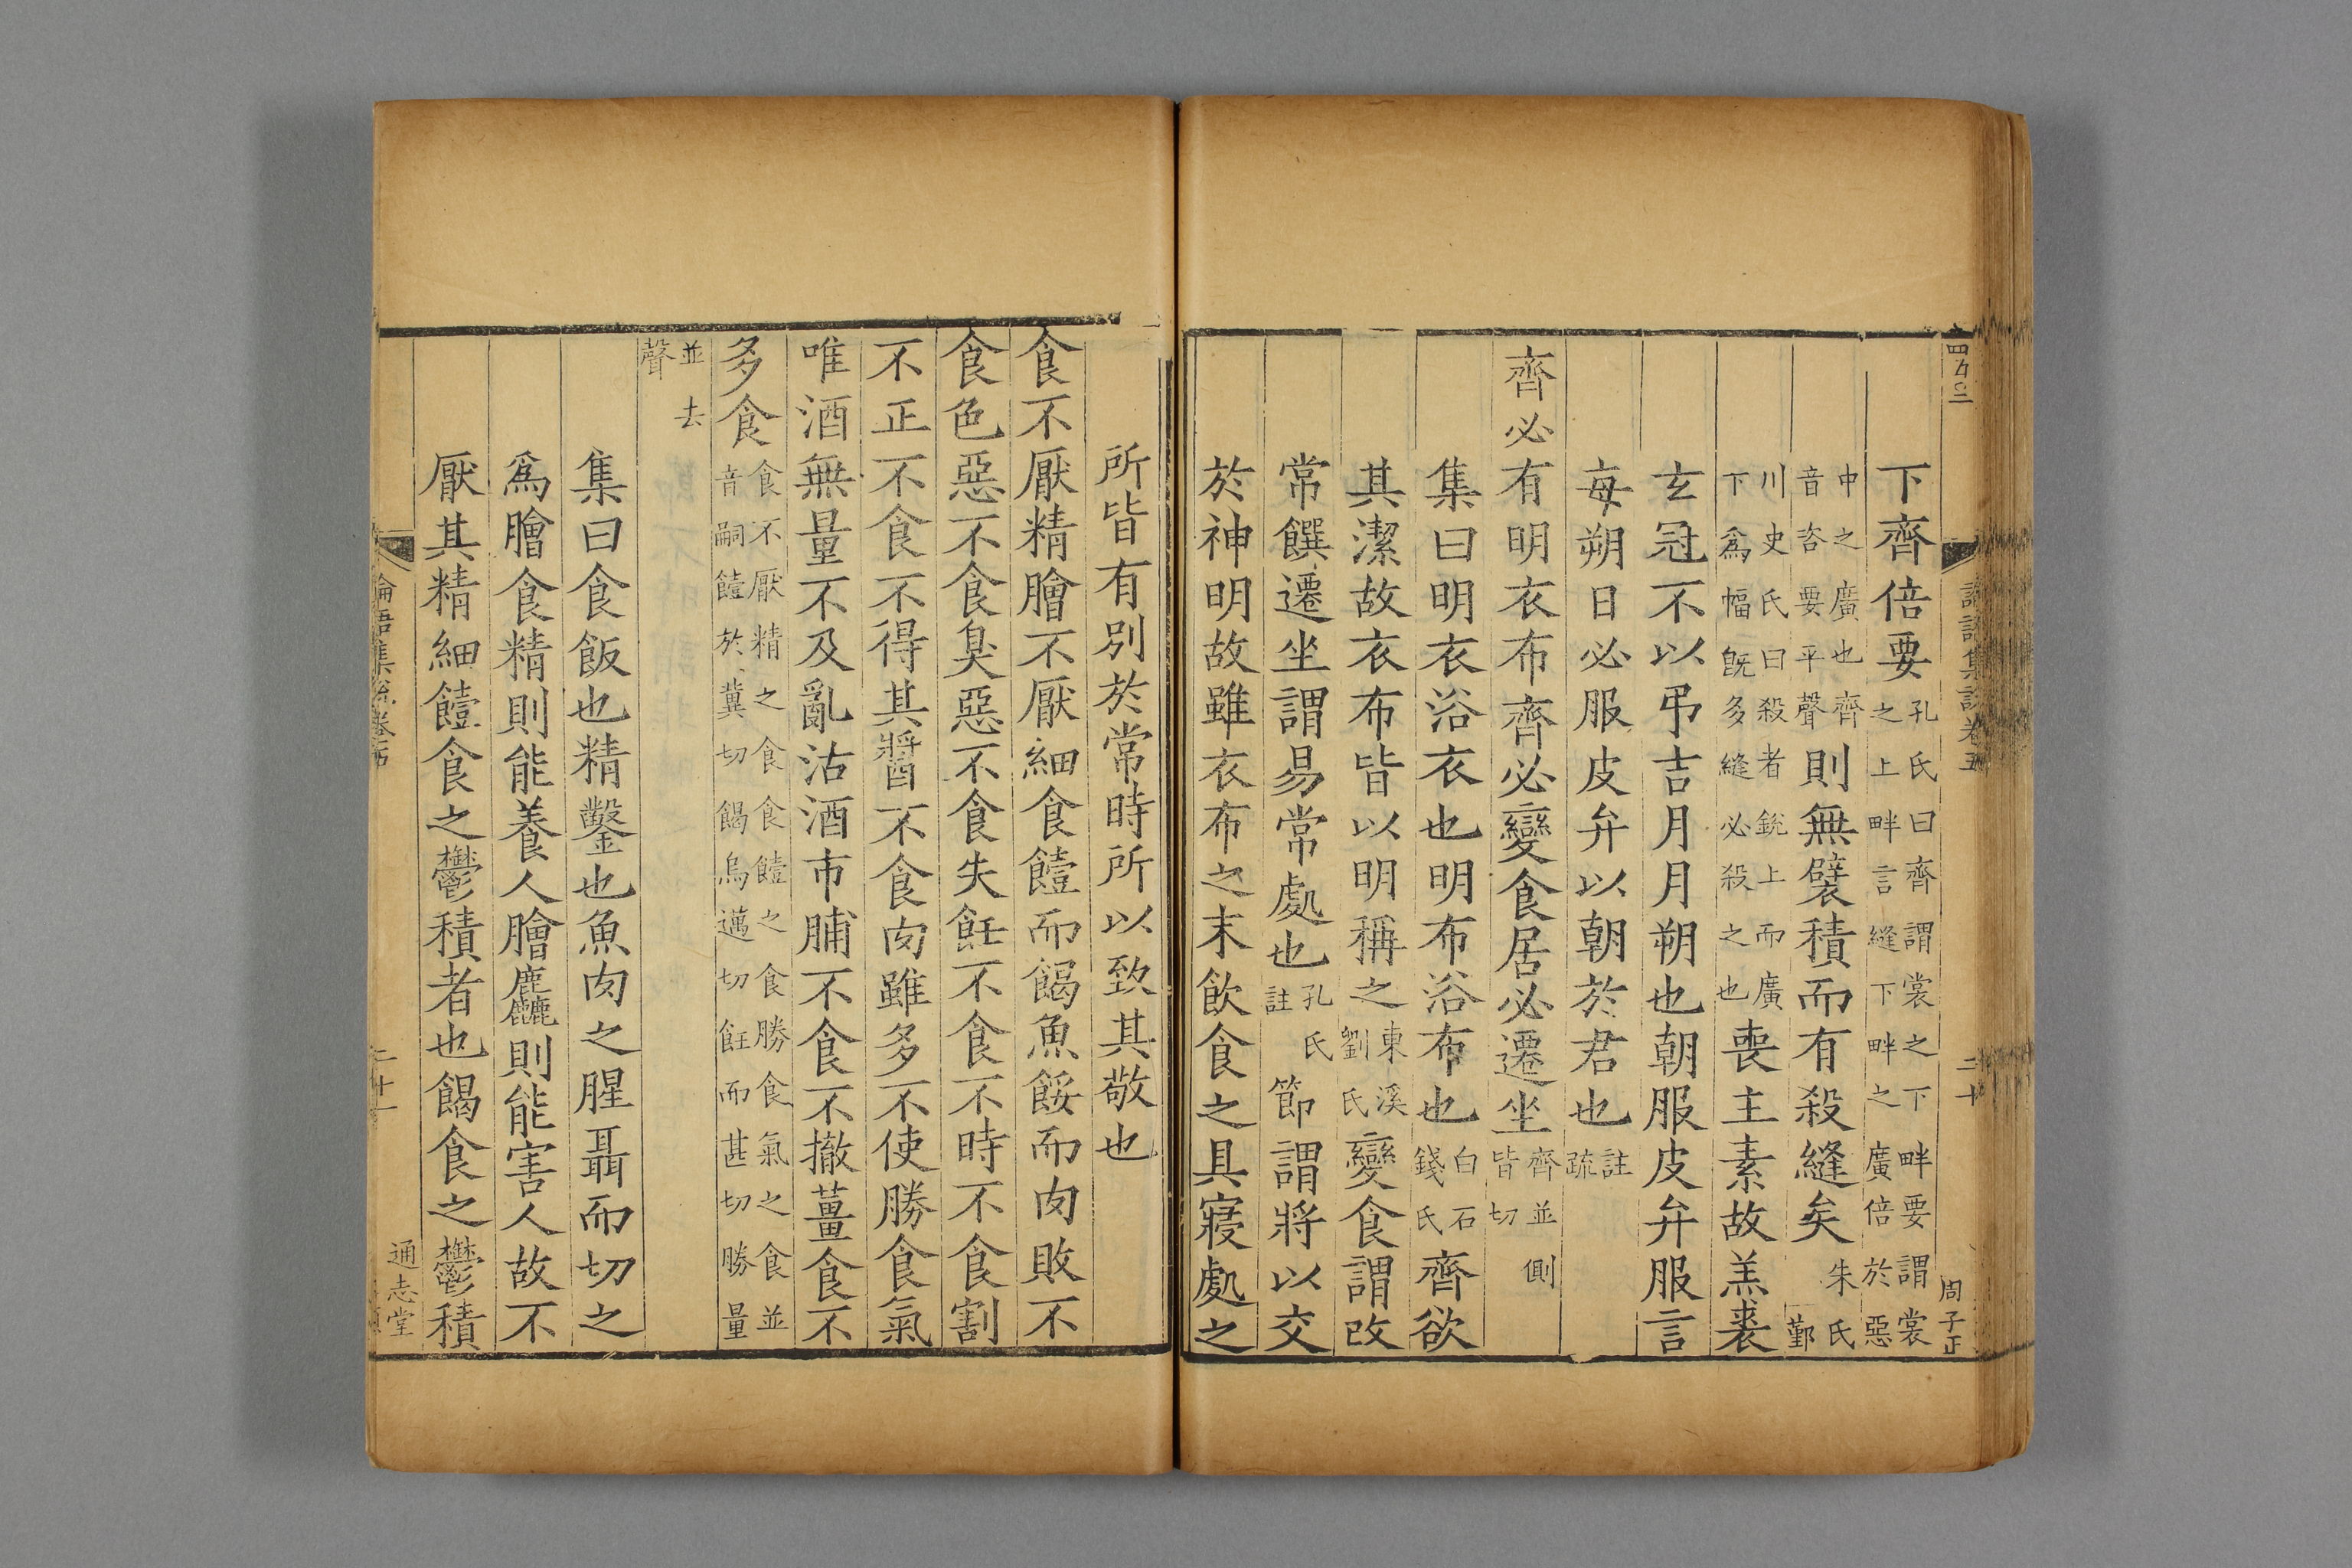 四百三
語集說卷五
二十
周子正
下齊倍要孔氏曰齊謂裳之下畔要謂裳之上畔言縫下畔之廣倍於惡
中之廣也齊音咨要平聲則無襞積而有殺縫矣朱氏鄞
川史氏曰殺者銳上而廣下爲幅旣多縫必殺之也喪主素故羔裘
玄冠不以弔吉月月朔也朝服皮弁服言
每朔日必服皮弁以朝於君也註疏
齊必有明衣布齊必變食居必遷坐齊並側皆切
集曰明衣浴衣也明布浴布也白石錢氏齊欲
其潔故衣布皆以明稱之東溪劉氏變食謂改
常饌遷坐謂易常處也孔氏註節謂將以交
於神明故雖衣布之末飲食之具寢處之
所皆有別於常時所以致其敬也
食不厭精膾不厭細食饐而餲魚餒而肉敗不
食色惡不食臭惡不食失飪不食不時不食割
不正不食不得其醬不食肉雖多不使勝食氣
唯酒無量不及亂沽酒市脯不食不撤薑食不
多食食不厭精之食食饐之食勝食氣之食並音嗣饐於冀切餲烏邁切飪而甚切勝量
並去聲
集曰食飯也精鑿也魚肉之腥聶而切之
爲膾食精則能養人膾麤則能害人故不
厭其精細饐食之鬱積者也餲食之鬱積
論語集說卷五
二十一
通志堂